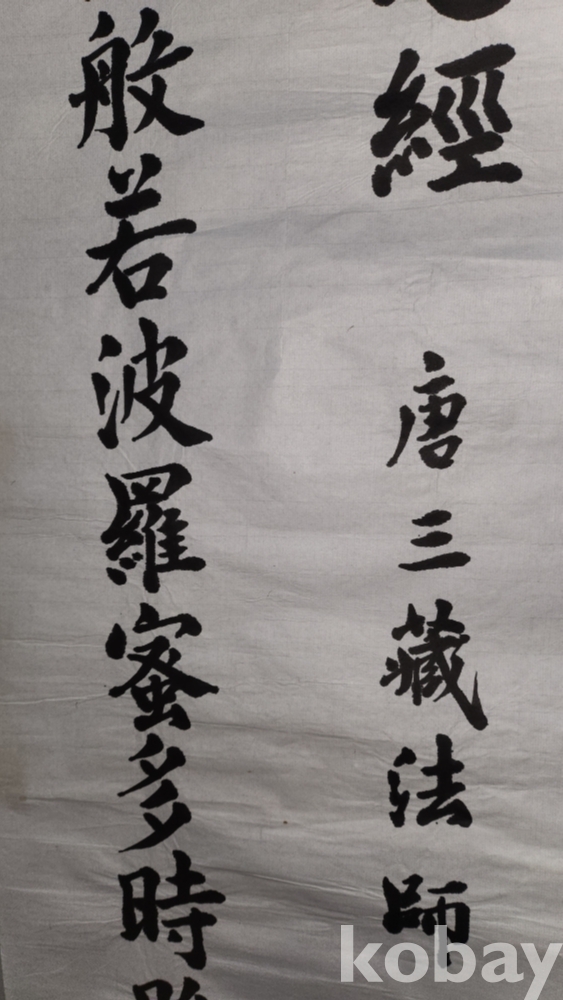 經 唐三藏法師
般若波羅蜜多時
kobay